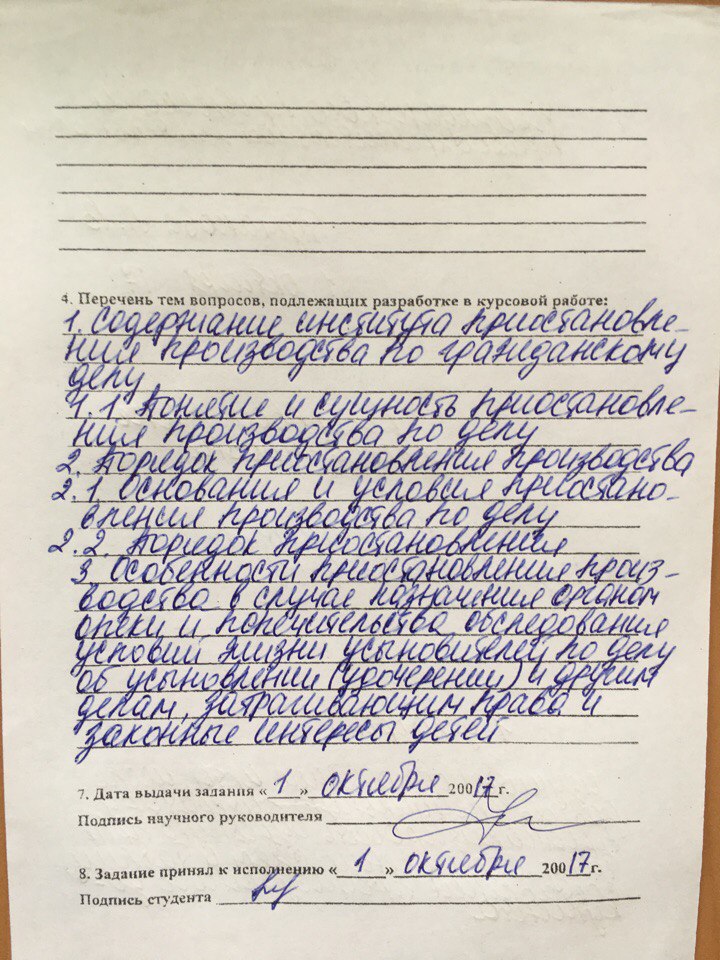 4. Перечень тем вопросов, подлежащих разработке в курсовой работе:
1. Содержание института приостановле-
ния производства по гражданскому
делу
1.1. Понятие и сущность приостановле-
ния производства по делу
2. Порядок приостановления производства
2.1. Основания и условия приостано-
вления производства по делу
2.2. Порядок приостановления
3. Особенности приостановления произ-
водства в случае назначения органам
опеки и попечительства обследования
условий жизни усыновителей по делу
об усыновлении (удочерении) и другим
делам, затрагивающим права и
законные интересы детей
7. Дата выдачи задания « 1 » октября 20017 г.
Подпись научного руководителя
8. Задание принял к исполнению « 1 » октября 20017 г.
Подпись студента